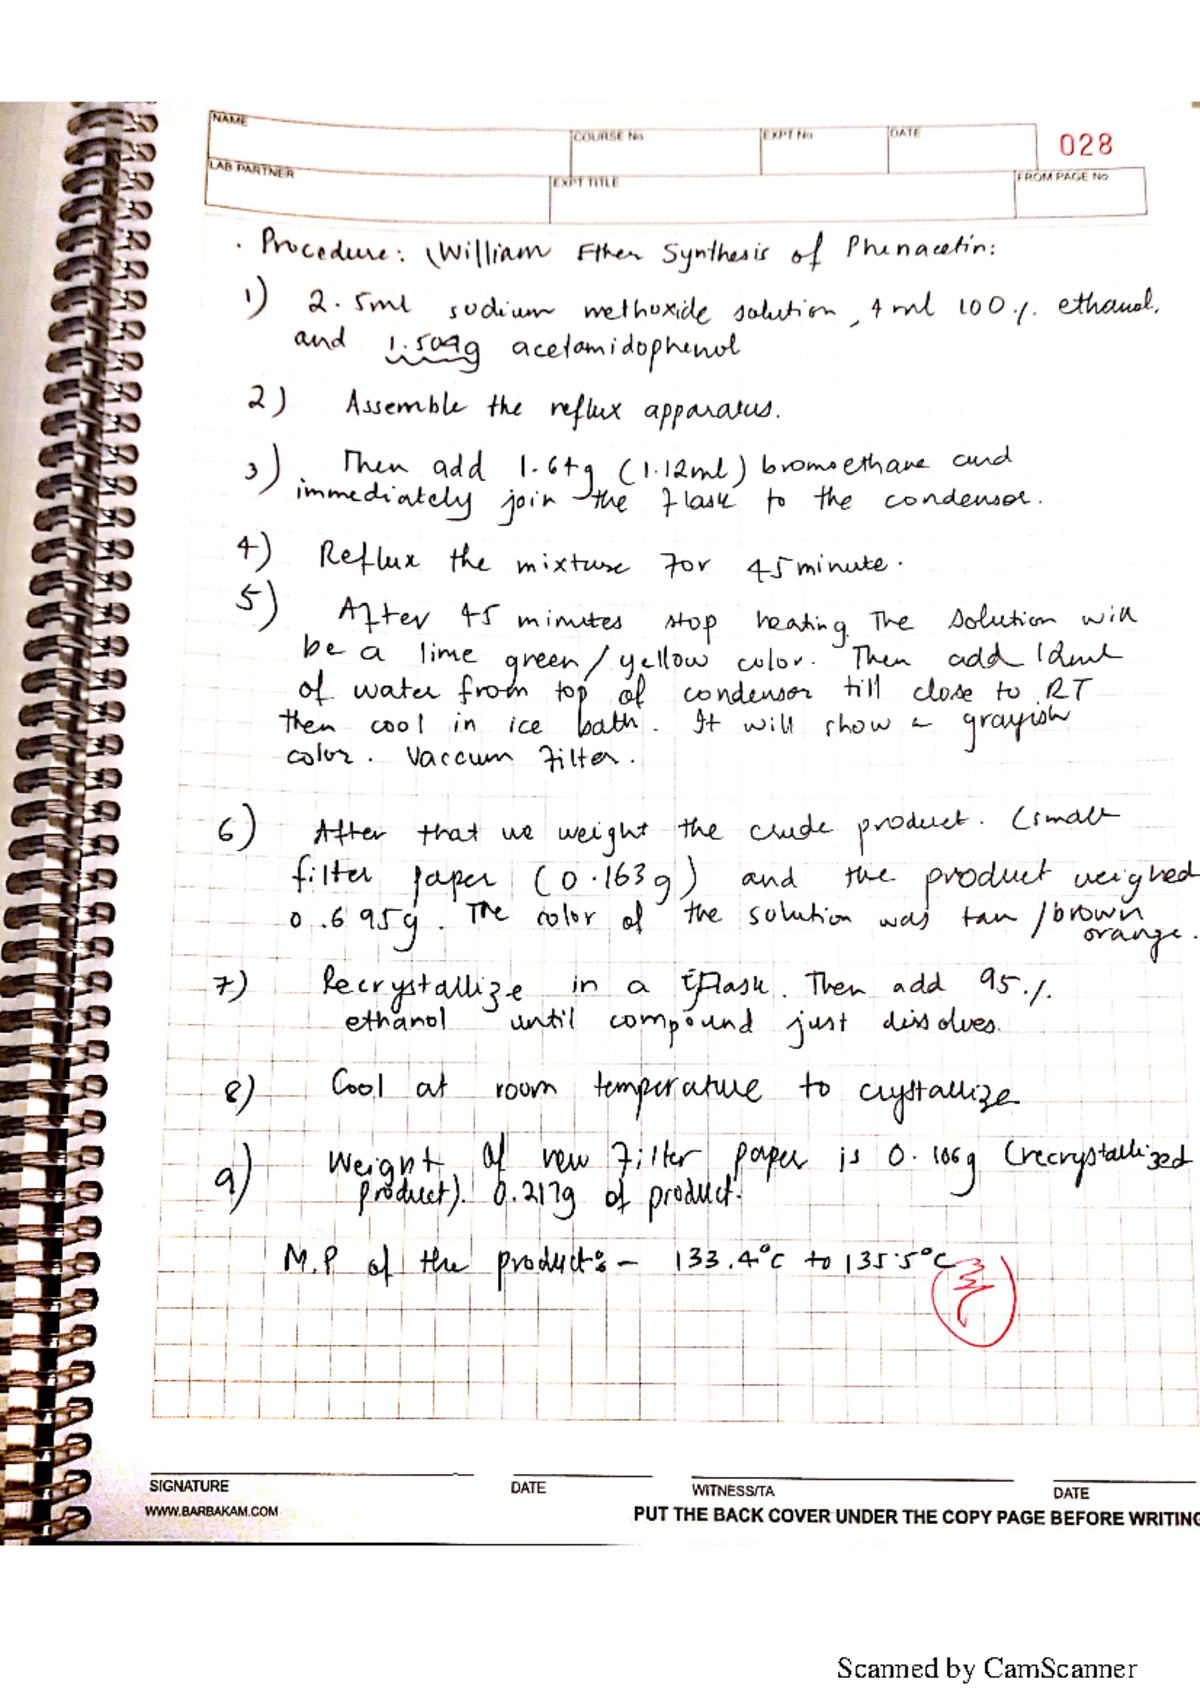 NAME
COURSE No
EXPT No
DATE
028
LAB PARTNER
EXPT TITLE
FROM PAGE No
. Procedure: (William Ether Synthesis of Phenacetin:
1) 2.5ml sodium methoxide solution, 4 ml 100 % ethanol,
and 1.509g acetamidophenol
2) Assemble the reflux apparatus.
3) Then add 1.64g (1.12ml) bromoethane and
immediately join the flask to the condensor.
4) Reflux the mixture for 45 minute.
5) After 45 minutes stop heating. The solution will
be a lime green/yellow color. Then add 12ml
of water from top of condensor till close to RT
then cool in ice bath. It will show a grayish
color. Vaccum filter.
6) After that we weight the crude product. (small
filter paper (0.163g) and the product weighed
0.695g. The color of the solution was tan/brown
orange.
7) Recrystallize in a flask. Then add 95%
ethanol until compound just dissolves.
8) Cool at room temperature to crystallize
9) Weight of new filter paper is 0.166g (recrystallized
product). 0.217g of product.
M.P of the product:- 133.4°C to 135.5°C
SIGNATURE
DATE
WITNESS/TA
DATE
WWW.BARBAKAM.COM
PUT THE BACK COVER UNDER THE COPY PAGE BEFORE WRITING
Scanned by CamScanner